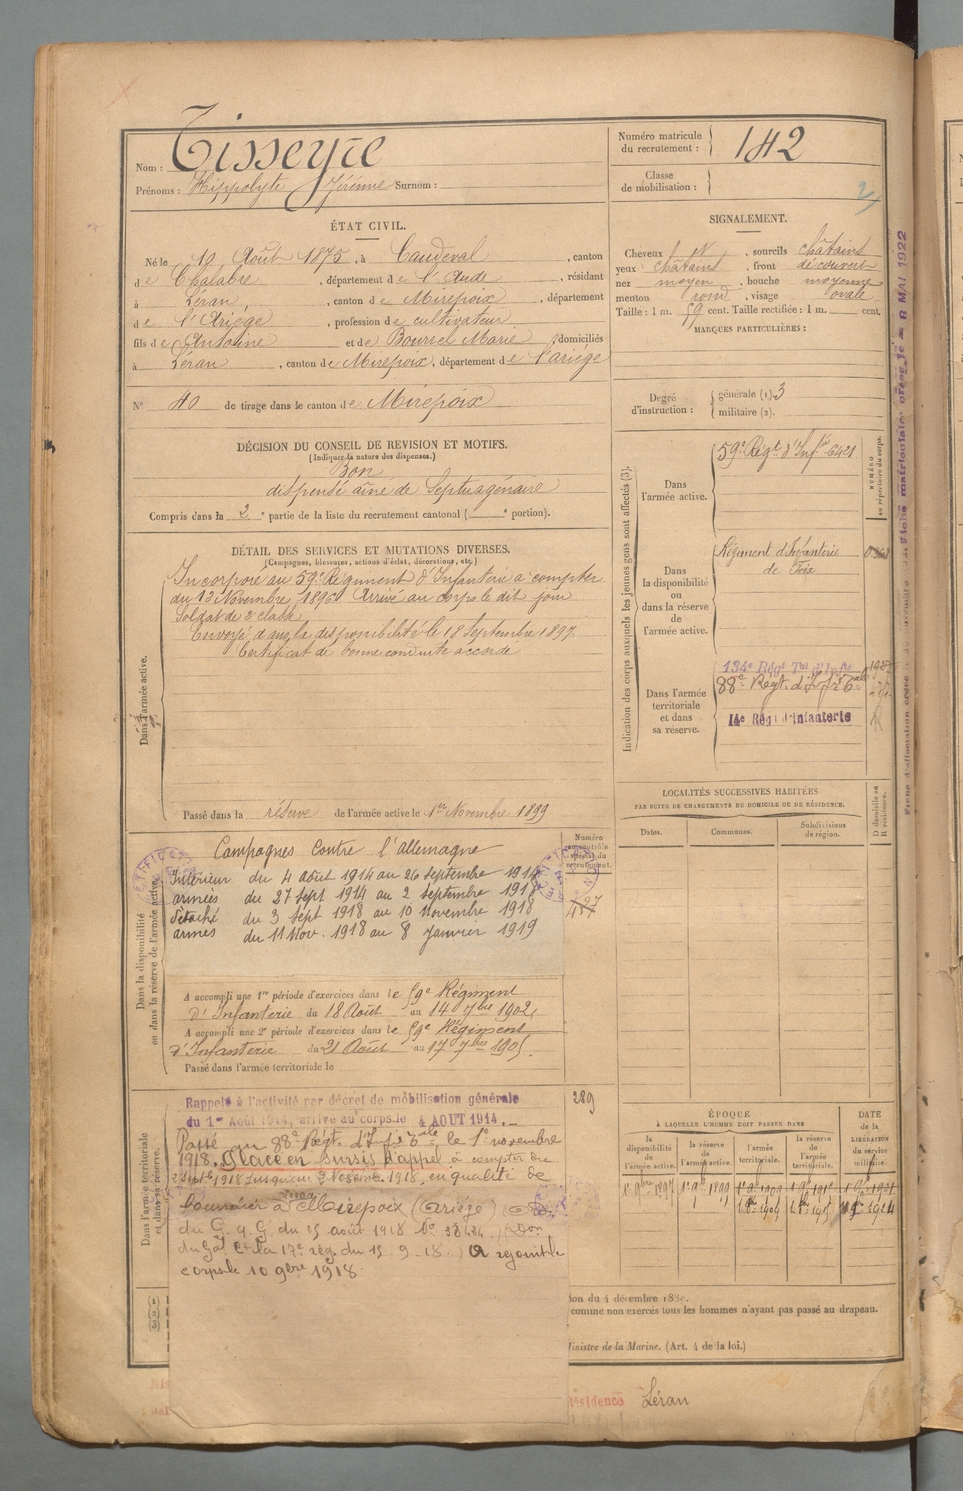 Nom : Tisseyre
Prénoms : Hippolyte Jérémie Surnom :
Numéro matricule du recrutement : 142
Classe de mobilisation :
ÉTAT CIVIL.
Né le 10 Août 1875, à Caudeval, canton
de Chalabre, département de l'Aude, résidant
à Léran, canton de Mirepoix, département
de l'Ariège, profession de cultivateur
fils de Antoine et de Boursel Marie domiciliés
à Léran, canton de Mirepoix, département de l'ariége
N° 40 de tirage dans le canton de Mirepoix
SIGNALEMENT.
Cheveux N, sourcils châtains
yeux châtains, front découvert
nez moyen, bouche moyenne
menton rond, visage ovale
Taille : 1 m. 59 cent. Taille rectifiée : 1 m. cent.
MARQUES PARTICULIÈRES :
Degré d'instruction : générale (1) 3
militaire (2).
DÉCISION DU CONSEIL DE REVISION ET MOTIFS.
(Indiquer la nature des dispenses.)
Bon
dispensé aîné de Septuagénaire
Compris dans la 2e partie de la liste du recrutement cantonal ( e portion).
DÉTAIL DES SERVICES ET MUTATIONS DIVERSES.
(Campagnes, blessures, actions d'éclat, décorations, etc.)
Dans l'armée active.
Incorporé au 59e Régiment d'Infanterie à compter
du 12 Novembre 1896 Arrivé au corps le dit jour
Soldat de 2e classe
Envoyé dans la disponibilité le 18 Septembre 1897
Certificat de bonne conduite accordé
Passé dans la réserve de l'armée active le 1er Novembre 1899
Indication des corps auxquels les jeunes gens sont affectés (3).
NUMÉRO au répertoire du corps.
Dans l'armée active.
59e Régt d'Infrie 6421
Dans la disponibilité ou dans la réserve de l'armée active.
Régiment d'Infanterie
de Foix
Dans l'armée territoriale et dans sa réserve.
134e Régt Tal d'Infie
88e Régt d'Inf
14e Régt d'Infanterie
LOCALITÉS SUCCESSIVES HABITÉES
PAR SUITE DE CHANGEMENTS DE DOMICILE OU DE RÉSIDENCE.
Dates. Communes. Subdivisions de région. D domicile ou R résidence.
Dans la disponibilité ou dans la réserve de l'armée active.
Numéro au contrôle spécial du recrutement.
Campagnes contre l'allemagne
Intérieur du 4 aout 1914 au 26 septembre 1914
armées du 27 sept 1914 au 2 septembre 1918
détaché du 3 sept 1918 au 10 Novembre 1918
armées du 11 Nov. 1918 au 8 Janvier 1919
A accompli une 1re période d'exercices dans le 59e Régiment
d'Infanterie du 18 Août au 14 7bre 1902
A accompli une 2e période d'exercices dans le 59e Régiment
d'Infanterie du 21 Août au 17 7bre 1905.
Passé dans l'armée territoriale le
Dans l'armée territoriale et dans sa réserve.
Rappelé à l'activité par décret de mobilisation générale
du 1er Août 1914, arrivé au corps le 4 AOUT 1914.
289
Passé au 88e Régt. d'Inf le 1e novembre
1918. Placé en sursis d'appel à compter du
2 Septe 1918 jusqu'au 1918, en qualité de
bourrelier à Mirepoix (Ariége)
du G. q G. du 15 août 1918 No 38424
du Gal Ct la 17e rég. du 15 9 18. A rejoint le
corps le 10 9bre 1918.
ÉPOQUE
À LAQUELLE L'HOMME DOIT PASSER DANS
la disponibilité de l'armée active. la réserve de l'armée active. l'armée territoriale. la réserve de l'armée territoriale.
DATE DE LA LIBÉRATION du service militaire.
1 9bre 1897
(1)
(2)
(3)
comme non exercés tous les hommes n'ayant pas passé au drapeau.
Ministre de la Marine. (Art. 4 de la loi.)
Résidence Léran